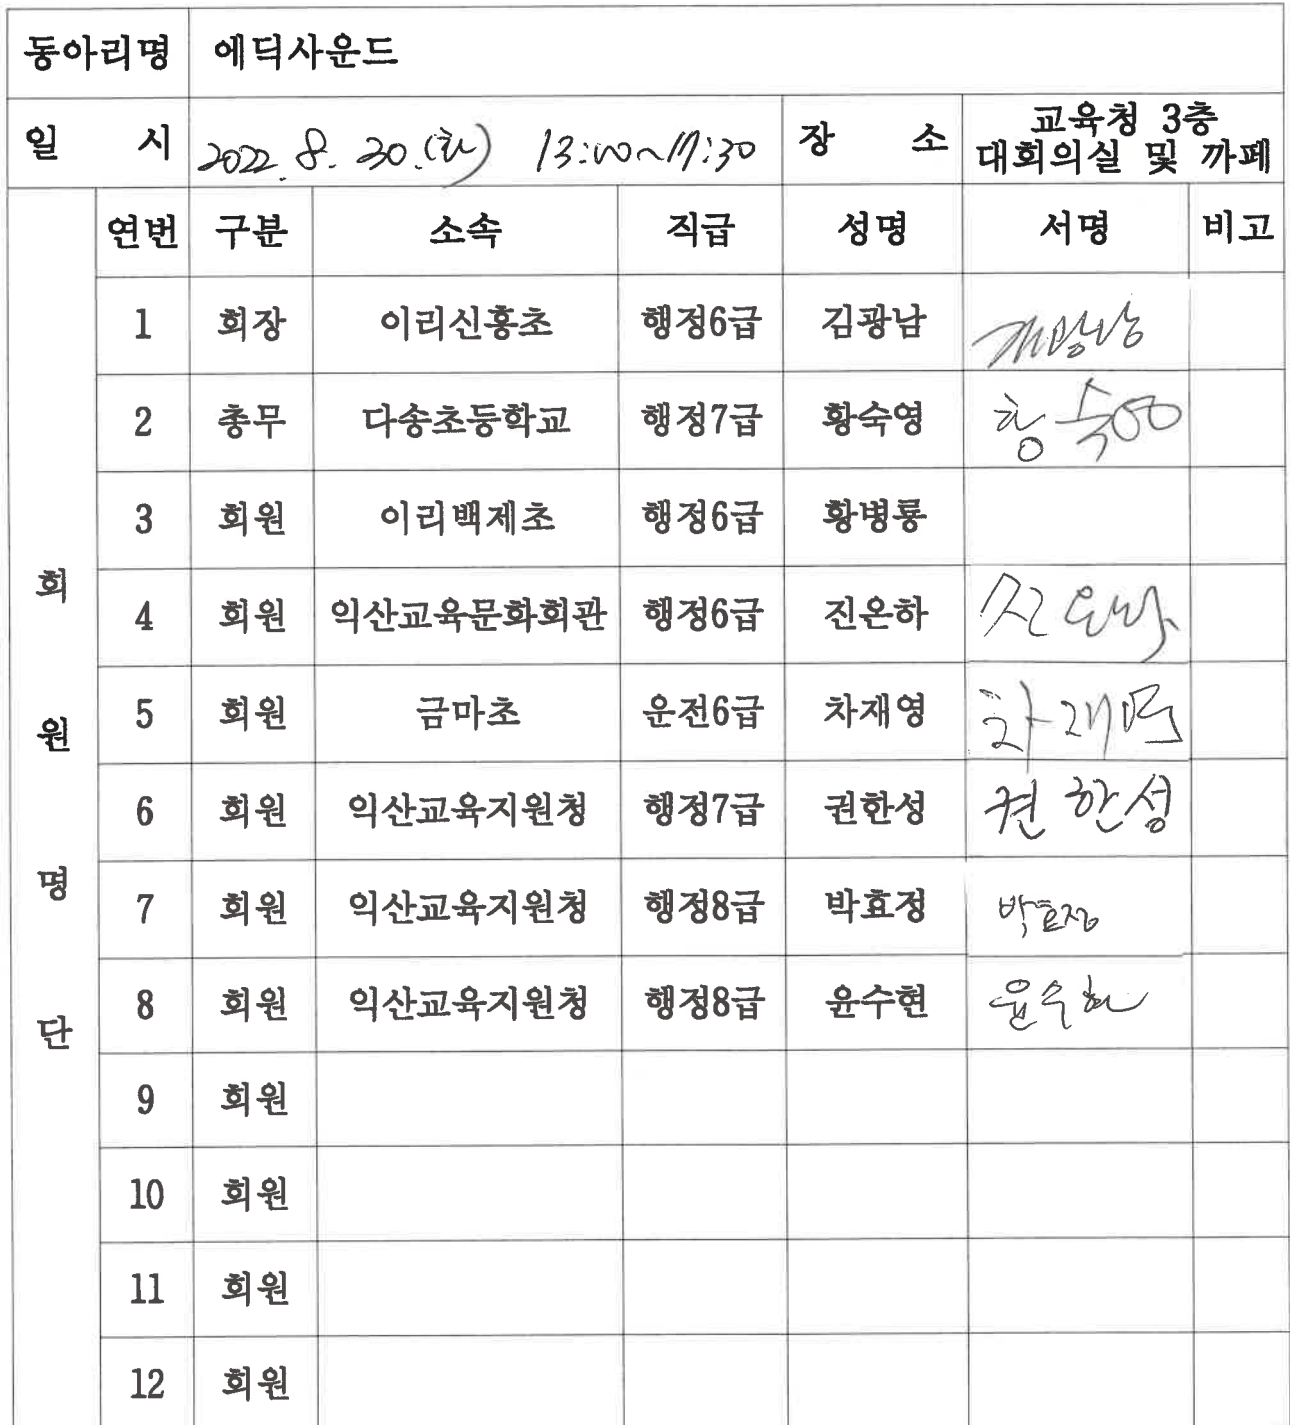 동아리명 에딕사운드
일 시 2022. 8. 30.(화) 13:00~17:30 장 소 교육청 3층
대회의실 및 까페
회원명단
연번 구분 소속 직급 성명 서명 비고
1 회장 이리신흥초 행정6급 김광남 김광남
2 총무 다송초등학교 행정7급 황숙영 황숙영
3 회원 이리백제초 행정6급 황병룡
4 회원 익산교육문화회관 행정6급 진은하 진은하
5 회원 금마초 운전6급 차재영 차재영
6 회원 익산교육지원청 행정7급 권한성 권한성
7 회원 익산교육지원청 행정8급 박효정 박효정
8 회원 익산교육지원청 행정8급 윤수현 윤수현
9 회원
10 회원
11 회원
12 회원